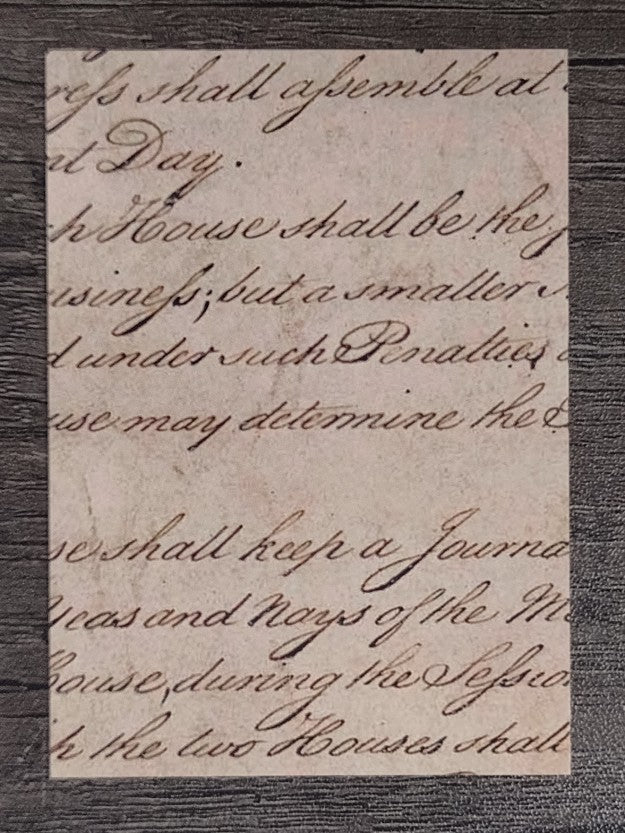 reſs shall aſsemble at
nt Day.
h House shall be the
usineſs; but a smaller
d under such Penalties
use may determine the
se shall keep a Journa
Yeas and Nays of the M
House, during the Seſsio
h the two Houses shall